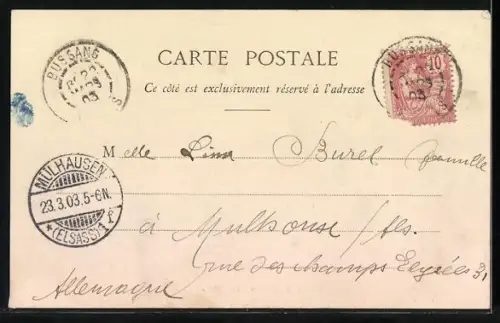 CARTE POSTALE
Ce côté est exclusivement réservé à l'adresse
BUSSANG
BUSSANG
10
Melle Lina Burel famille
MÜLHAUSEN
23.3.03.5-6N.
*(ELSASS)1 f
à Mulhouse /Els.
rue des champs Elysées 31
Allemagne